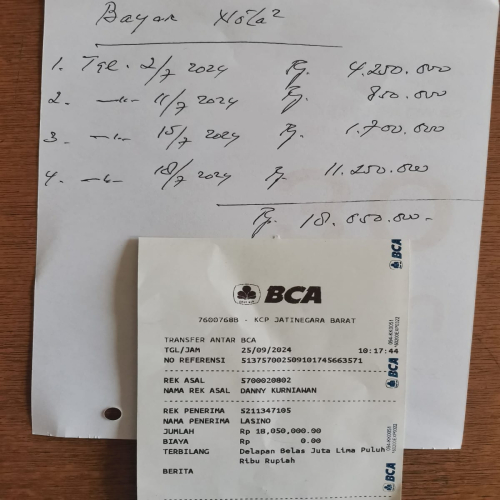 Bayar Nota²
1. Tgl. 2/7 2024 Rp. 4.250.000
2. —"— 11/7 2024 Rp. 850.000
3. —"— 15/7 2024 Rp. 1.700.000
4. —"— 18/7 2024 Rp 11.250.000
Rp. 18.050.000-
BCA
7600768B - KCP JATINEGARA BARAT
TRANSFER ANTAR BCA
TGL/JAM 25/09/2024 10:17:44
NO REFERENSI 513757002509101745663571
REK ASAL 5700020802
NAMA REK ASAL DANNY KURNIAWAN
REK PENERIMA 5211347105
NAMA PENERIMA LASINO
JUMLAH Rp 18,050,000.00
BIAYA Rp 0.00
TERBILANG Delapan Belas Juta Lima Puluh
Ribu Rupiah
BERITA
BCA
BCA
BCA